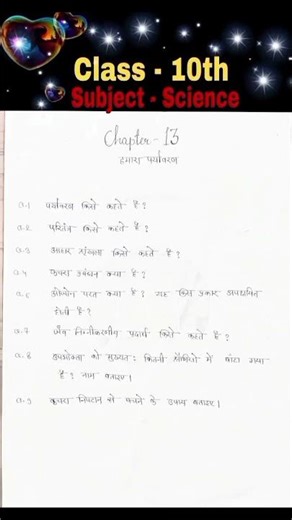 Class - 10th
Subject - Science
Chapter - 13
हमारा पर्यावरण
Q.1 पर्यावरण किसे कहते है?
Q.2 परितंत्र किसे कहते है?
Q.3 आहार श्रृंखला किसे कहते है?
Q.4 कचरा प्रबंधन क्या है?
Q.6 ओजोन परत क्या है? यह किस प्रकार अपघटित
होती है?
Q.7 जैव निम्नीकरणीय पदार्थ किसे कहते है?
Q.8 उपभोक्ता को मुख्यतः कितनी श्रेणियों में बाँटा गया
है? नाम बताइए।
Q.9 कूचरा निपटान को करने के उपाय बताइए।